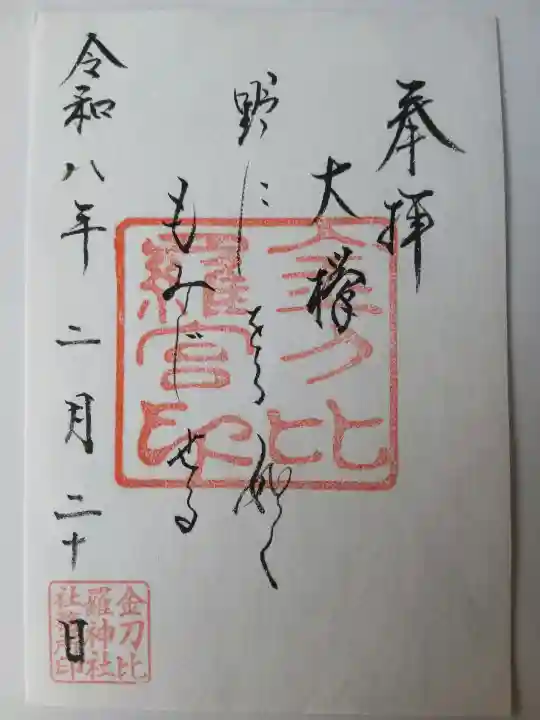 奉拝
大欅
野に立つ如く
もみじせる
令和八年 二月 二十日
金刀比
羅宮印
金刀比
羅神社